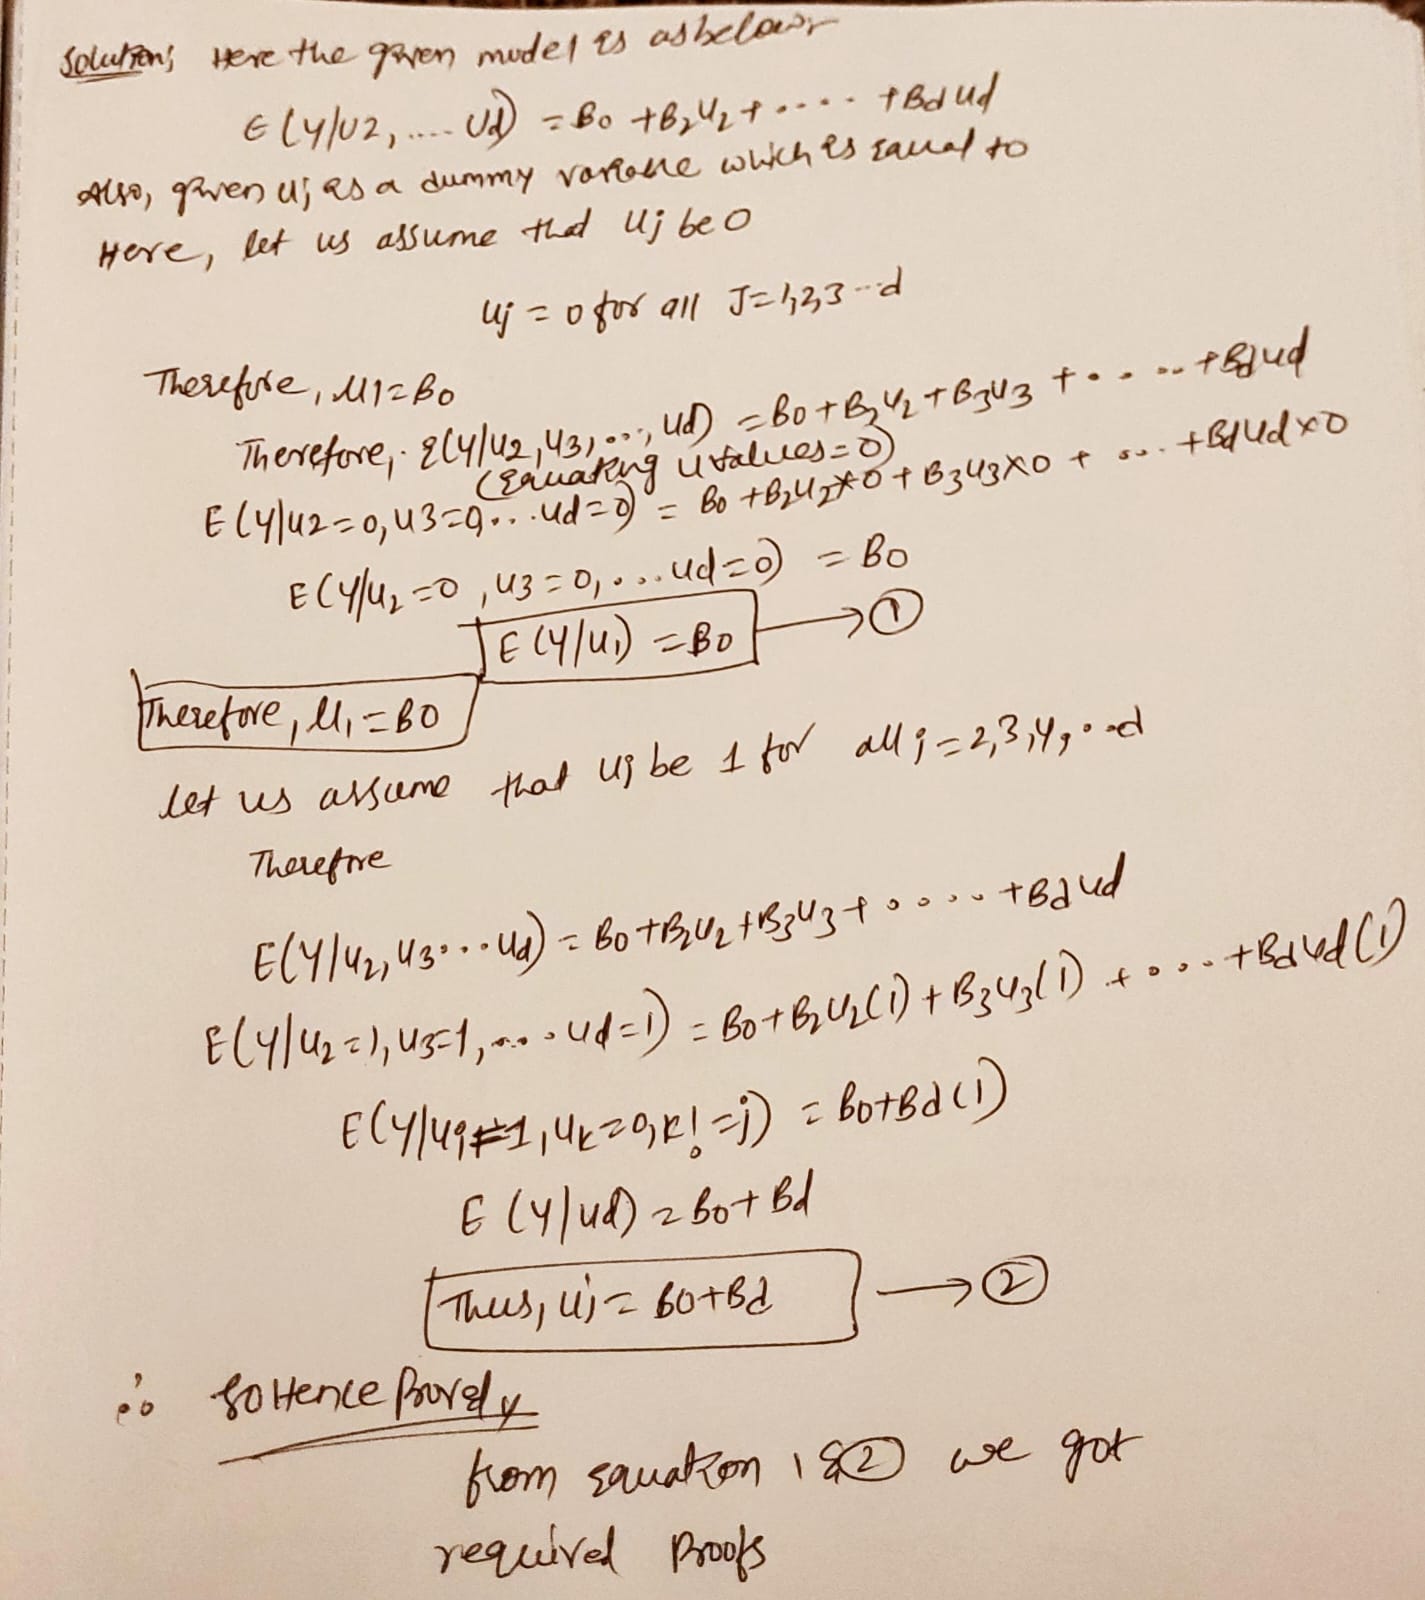 Solution; Here the given model is as below
E(Y/U2, ..... Ud) = B0 + B2U2 + ..... + BdUd
Also, given Uj as a dummy variable which is equal to
Here, let us assume that Uj be 0
Uj = 0 for all J=1,2,3...d
Therefore, M1=B0
Therefore, E(Y/U2,U3,..., Ud) = B0 + B2U2 + B3U3 + ..... + BdUd
(Equating u values=0)
E(Y/U2=0, U3=0...Ud=0) = B0 + B2U2*0 + B3U3×0 + .... + BdUd×0
E(Y/U2=0, U3=0,...Ud=0) = B0
E(Y/U1) = B0 → ①
Therefore, M1 = B0
let us assume that Uj be 1 for all j=2,3,4,..d
Therefore
E(Y/U2,U3...Ud) = B0+B2U2+B3U3+.....+BdUd
E(Y/U2=1, U3=1,.....Ud=1) = B0+B2U2(1)+B3U3(1)+....+BdUd(1)
E(Y/Uj=1, Uk=0, K!=j) = B0+Bd(1)
E(Y/Ud) = B0+Bd
Thus, Uj = B0+Bd → ②
∴ So Hence Proved
from equation 1 & ② we got
required Proofs